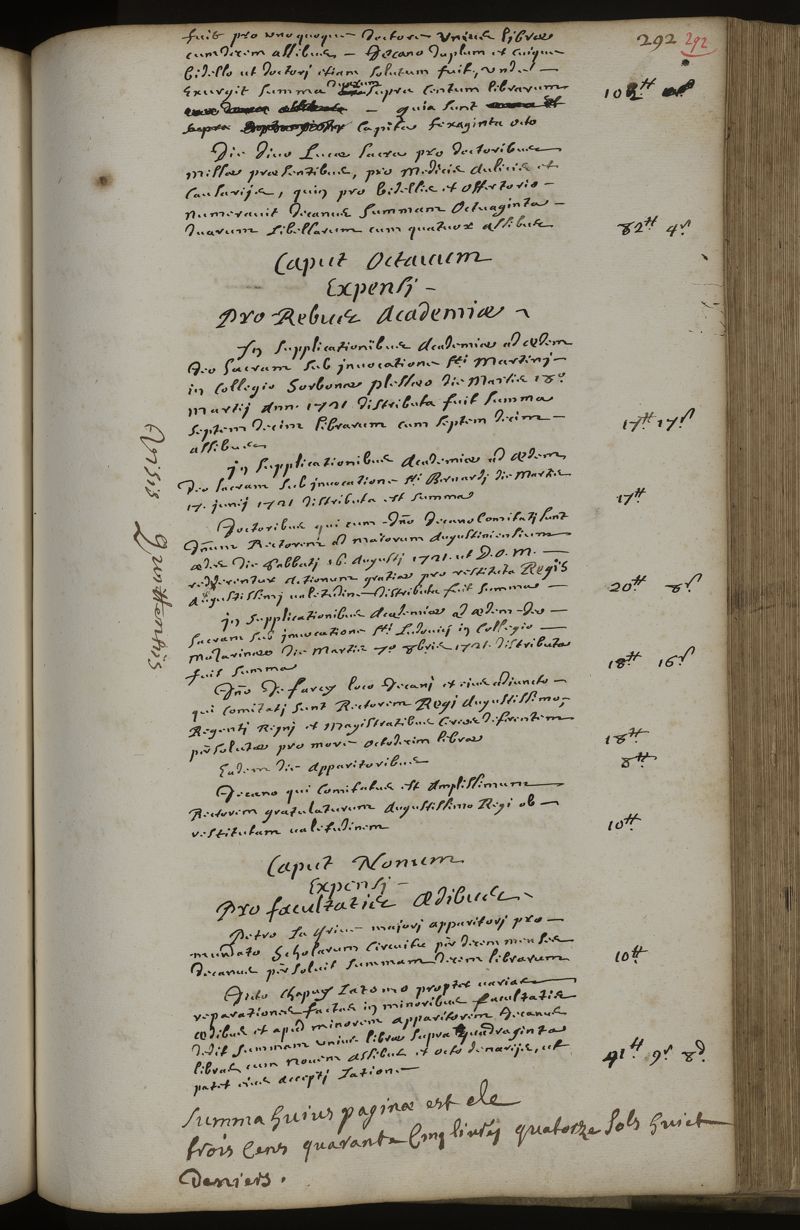 292 292
fuit pro unoquoque doctore unius librae
cum decem assibus – Decano duplum et cuique
bidello ut doctorj etiam solutum fuit, unde –
Exurgit summa duarum supra centum librarum 102ᵗᵗ
– quia sunt
supra capita sexaginta octo
Die divo Lucae sacra pro doctoribus
missae praesentibus, pro medicis aulicis et
causarijs, quin pro bidellis et offertorio –
numeravit decanus summam octuaginta –
duarum libellarum cum quatuor assibus 82ᵗᵗ 4ˢ
Caput Octavum
Expensj –
Pro Rebus Academiae
In supplicationibus Academiae ad aedem
deo sacram sub invocatione Sti Martinj –
in Collegio Sorbonae plessaeo die Martis 18º
martij Ann. 1721 distributa fuit summa
septem decim librarum cum septem decim – 17ᵗᵗ 17ˢ
assibus
jn supplicationibus Academiae ad aedem
deo sacram sub jnvocatione Sti Bernardj die Martis
17. junij 1721 distributa est summa 17ᵗᵗ
Doctoribus qui cum Dño Decano Comitatj sunt
Dñum Rectorem ad maiorum Augustiniensium
aedes die sabbatj 16. Augustj 1721. ut D. O. M. –
redderentur actionum gratiae pro restituta Regis
Augustissimj valetudine distributa fuit summa – 20ᵗᵗ 8ˢ
jn supplicationibus Academiae ad aedem deo –
sacram sub jnvocatione Sti Ludovicj in Collegio –
Mazarinaeo die Martis 7º 8bris 1721. distributa
fuit summa 18ᵗᵗ 16ˢ
Dño De farcy loco Decanj et ejus adjuncto –
qui comitatj sunt Rectorem Regi Augustissimo,
Regentj Regnj et Magistratibus Cereos deferentem
persolutae pro more octodecim librae 18ᵗᵗ
Eadem die Apparitoribus 8ᵗᵗ
Decano qui comitatus est Amplissimum
Rectorem gratulaturum Augustissimo Regi ob –
restitutam valetudinem 10ᵗᵗ
Caput Nonum
Expensj –
Pro facultatis aedibus
Petro majorj apparitorj pro –
mundato scholarum circuitu per decem menses
decanus persolvit summam decem librarum 10ᵗᵗ
Dicto Chapuy latomo propter varias
reparationes factas in minoribus facultatis
aedibus et apud minorem apparitorem decanus
dedit summam unius librae supra quadraginta
libras cum novem assibus et octo denarijs, ut 41ᵗᵗ 9ˢ 8ᵈ
patet ejus acceptj latione
Summa huius paginae est de
trois Cens quarante Cinq livres quatorze sols huict
deniers.